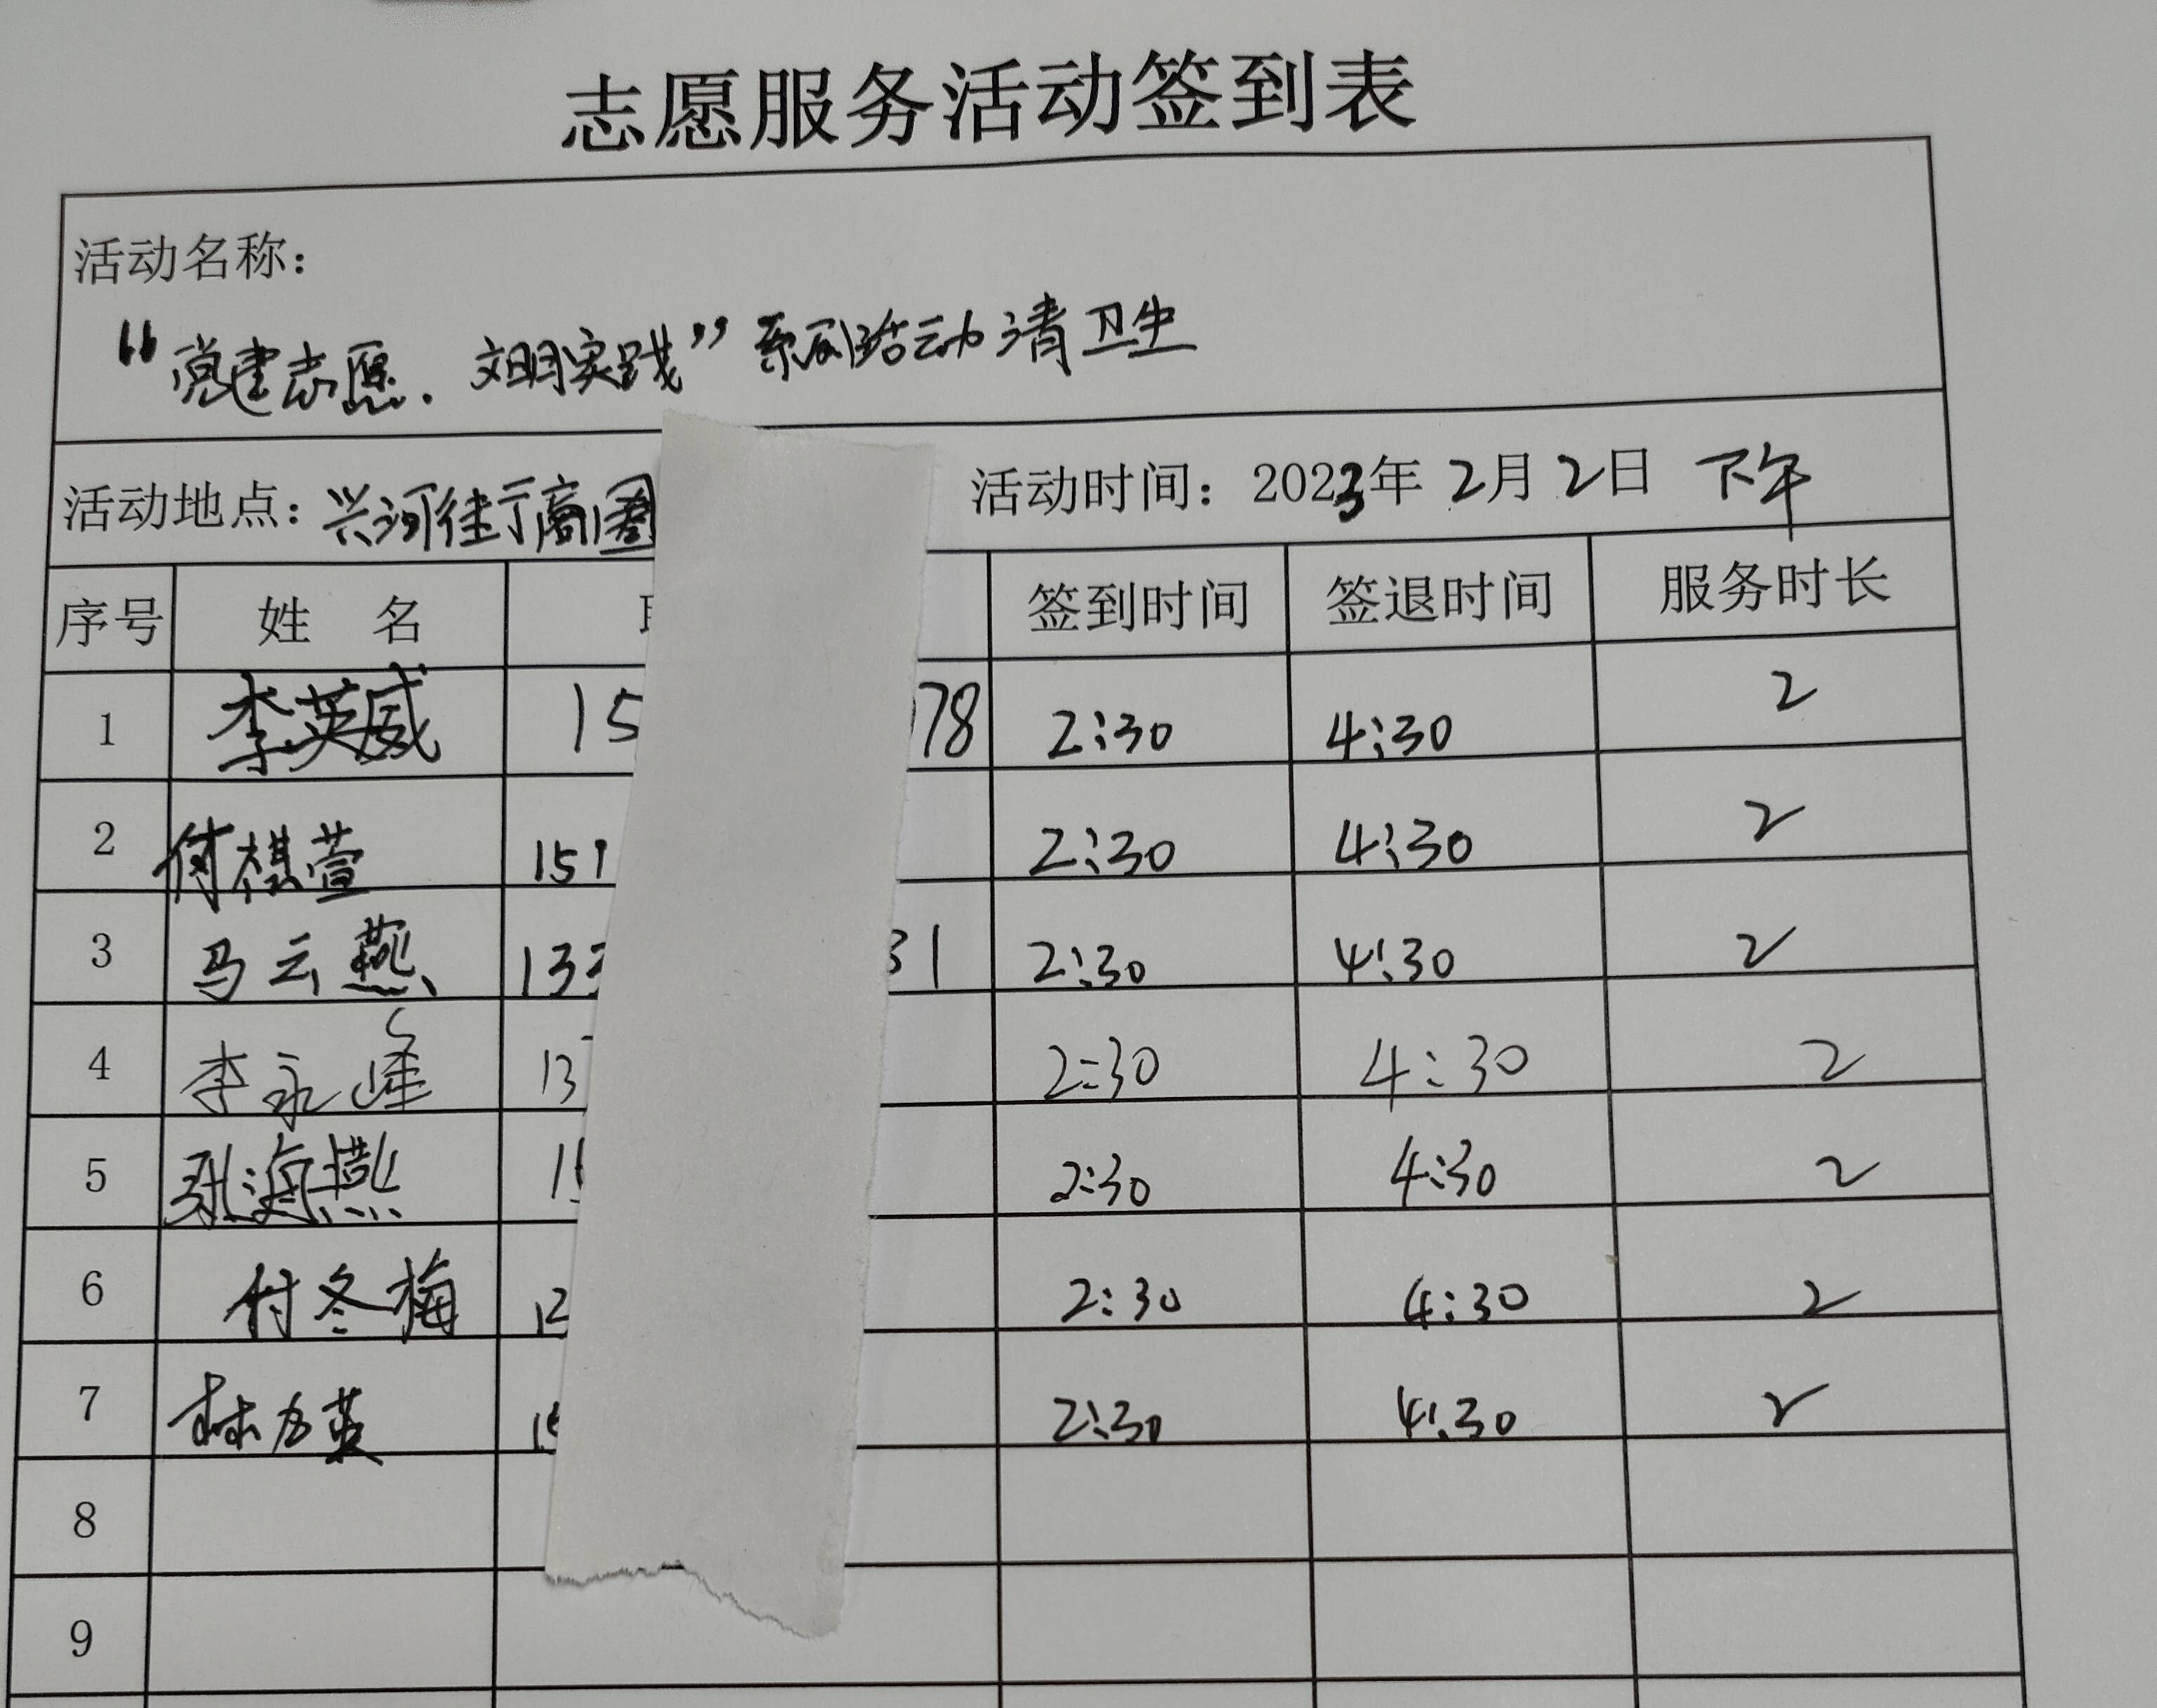 志愿服务活动签到表
活动名称：
“党建志愿．文明实践”系列活动清卫生
活动地点：兴河街亍商圈 活动时间：2023年2月2日 下午
序号 姓 名 签到时间 签退时间 服务时长
1 李英威 15 78 2:30 4:30 2
2 何棋萱 151 2:30 4:30 2
3 马云燕 133 31 2:30 4:30 2
4 李永峰 13 2:30 4:30 2
5 张海燕 2:30 4:30 2
6 付冬梅 2:30 4:30 2
7 2:30 4:30 2
8
9